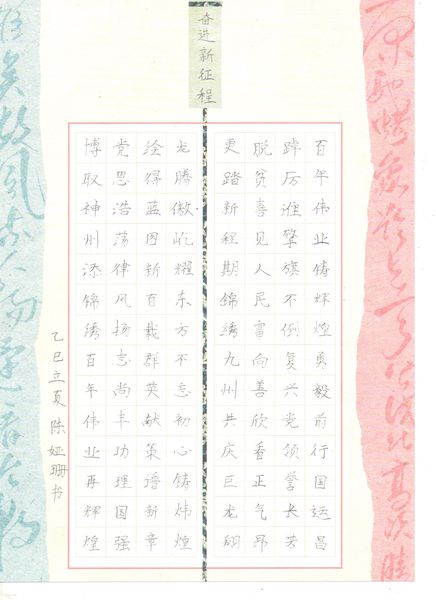 奋进新征程
百年伟业铸辉煌勇毅前行国运昌
踔厉谁擎旗不倒复兴党领誉长芳
脱贫喜见人民富向善欣看正气昂
更踏新程期锦绣九州共庆巨龙翔
龙腾傲屹耀东方不忘初心铸炜煌
绘得蓝图新百载群英献策谱新章
党思浩荡律风扬志尚丰功理国强
博取神州添锦绣百年伟业再辉煌
乙巳立夏 陈娅珊书